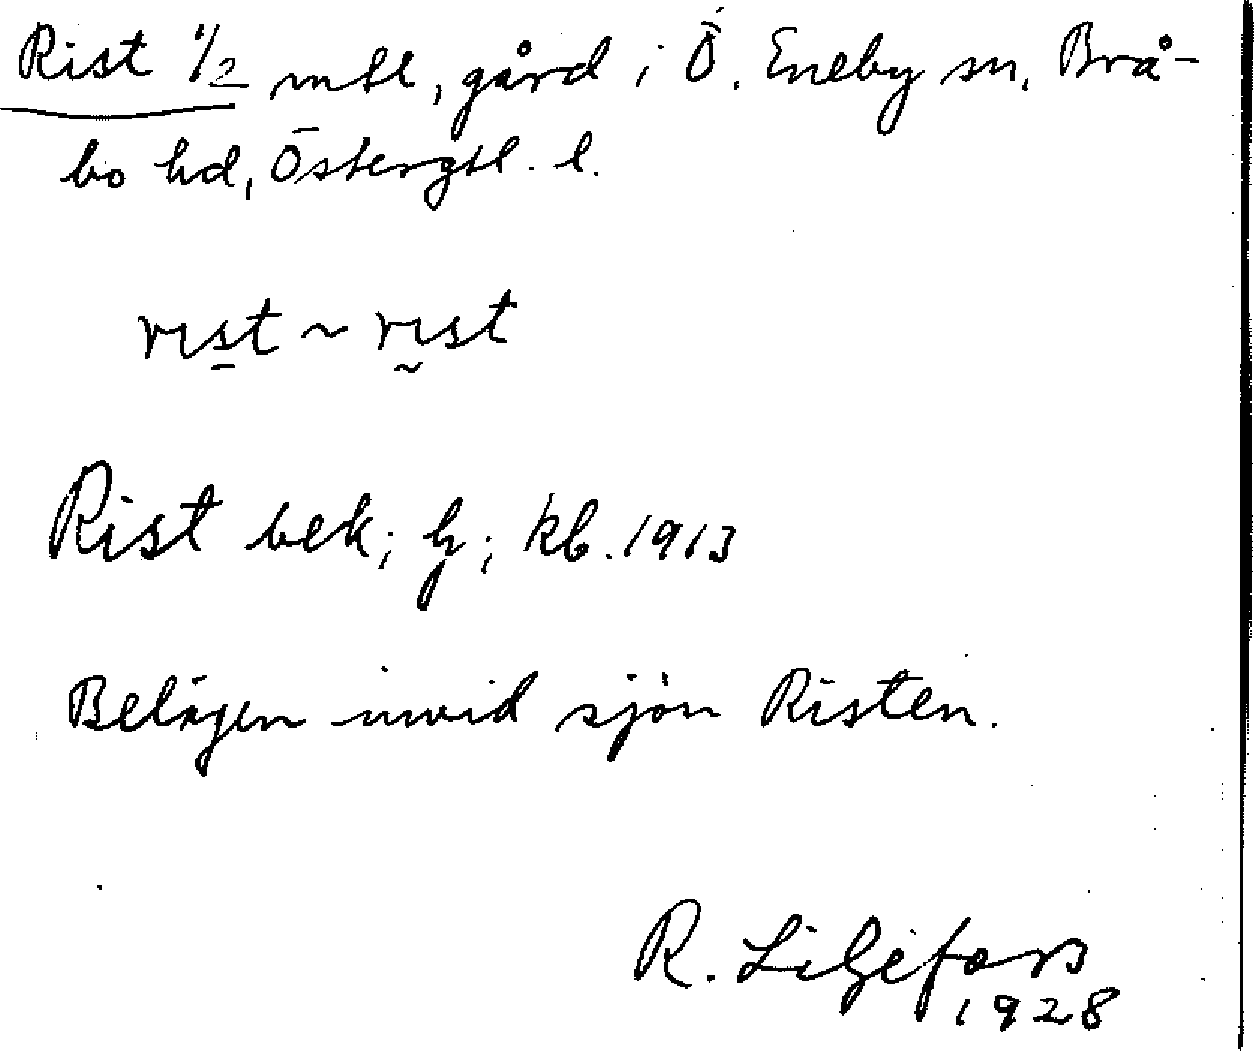 Rist 1/2 mtl, gård i Ö. Eneby sn, Brå-
bo hd, Östergtl. l.
rıst ~ rıst
Rist bek; hz; kb. 1913
Belägen invid sjön Risten.
R. Liljefors
1928